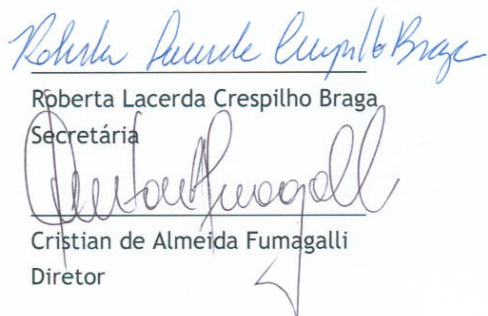 Roberta Lacerda Crespilho Braga
Roberta Lacerda Crespilho Braga
Secretária
Cristian Fumagalli
Cristian de Almeida Fumagalli
Diretor